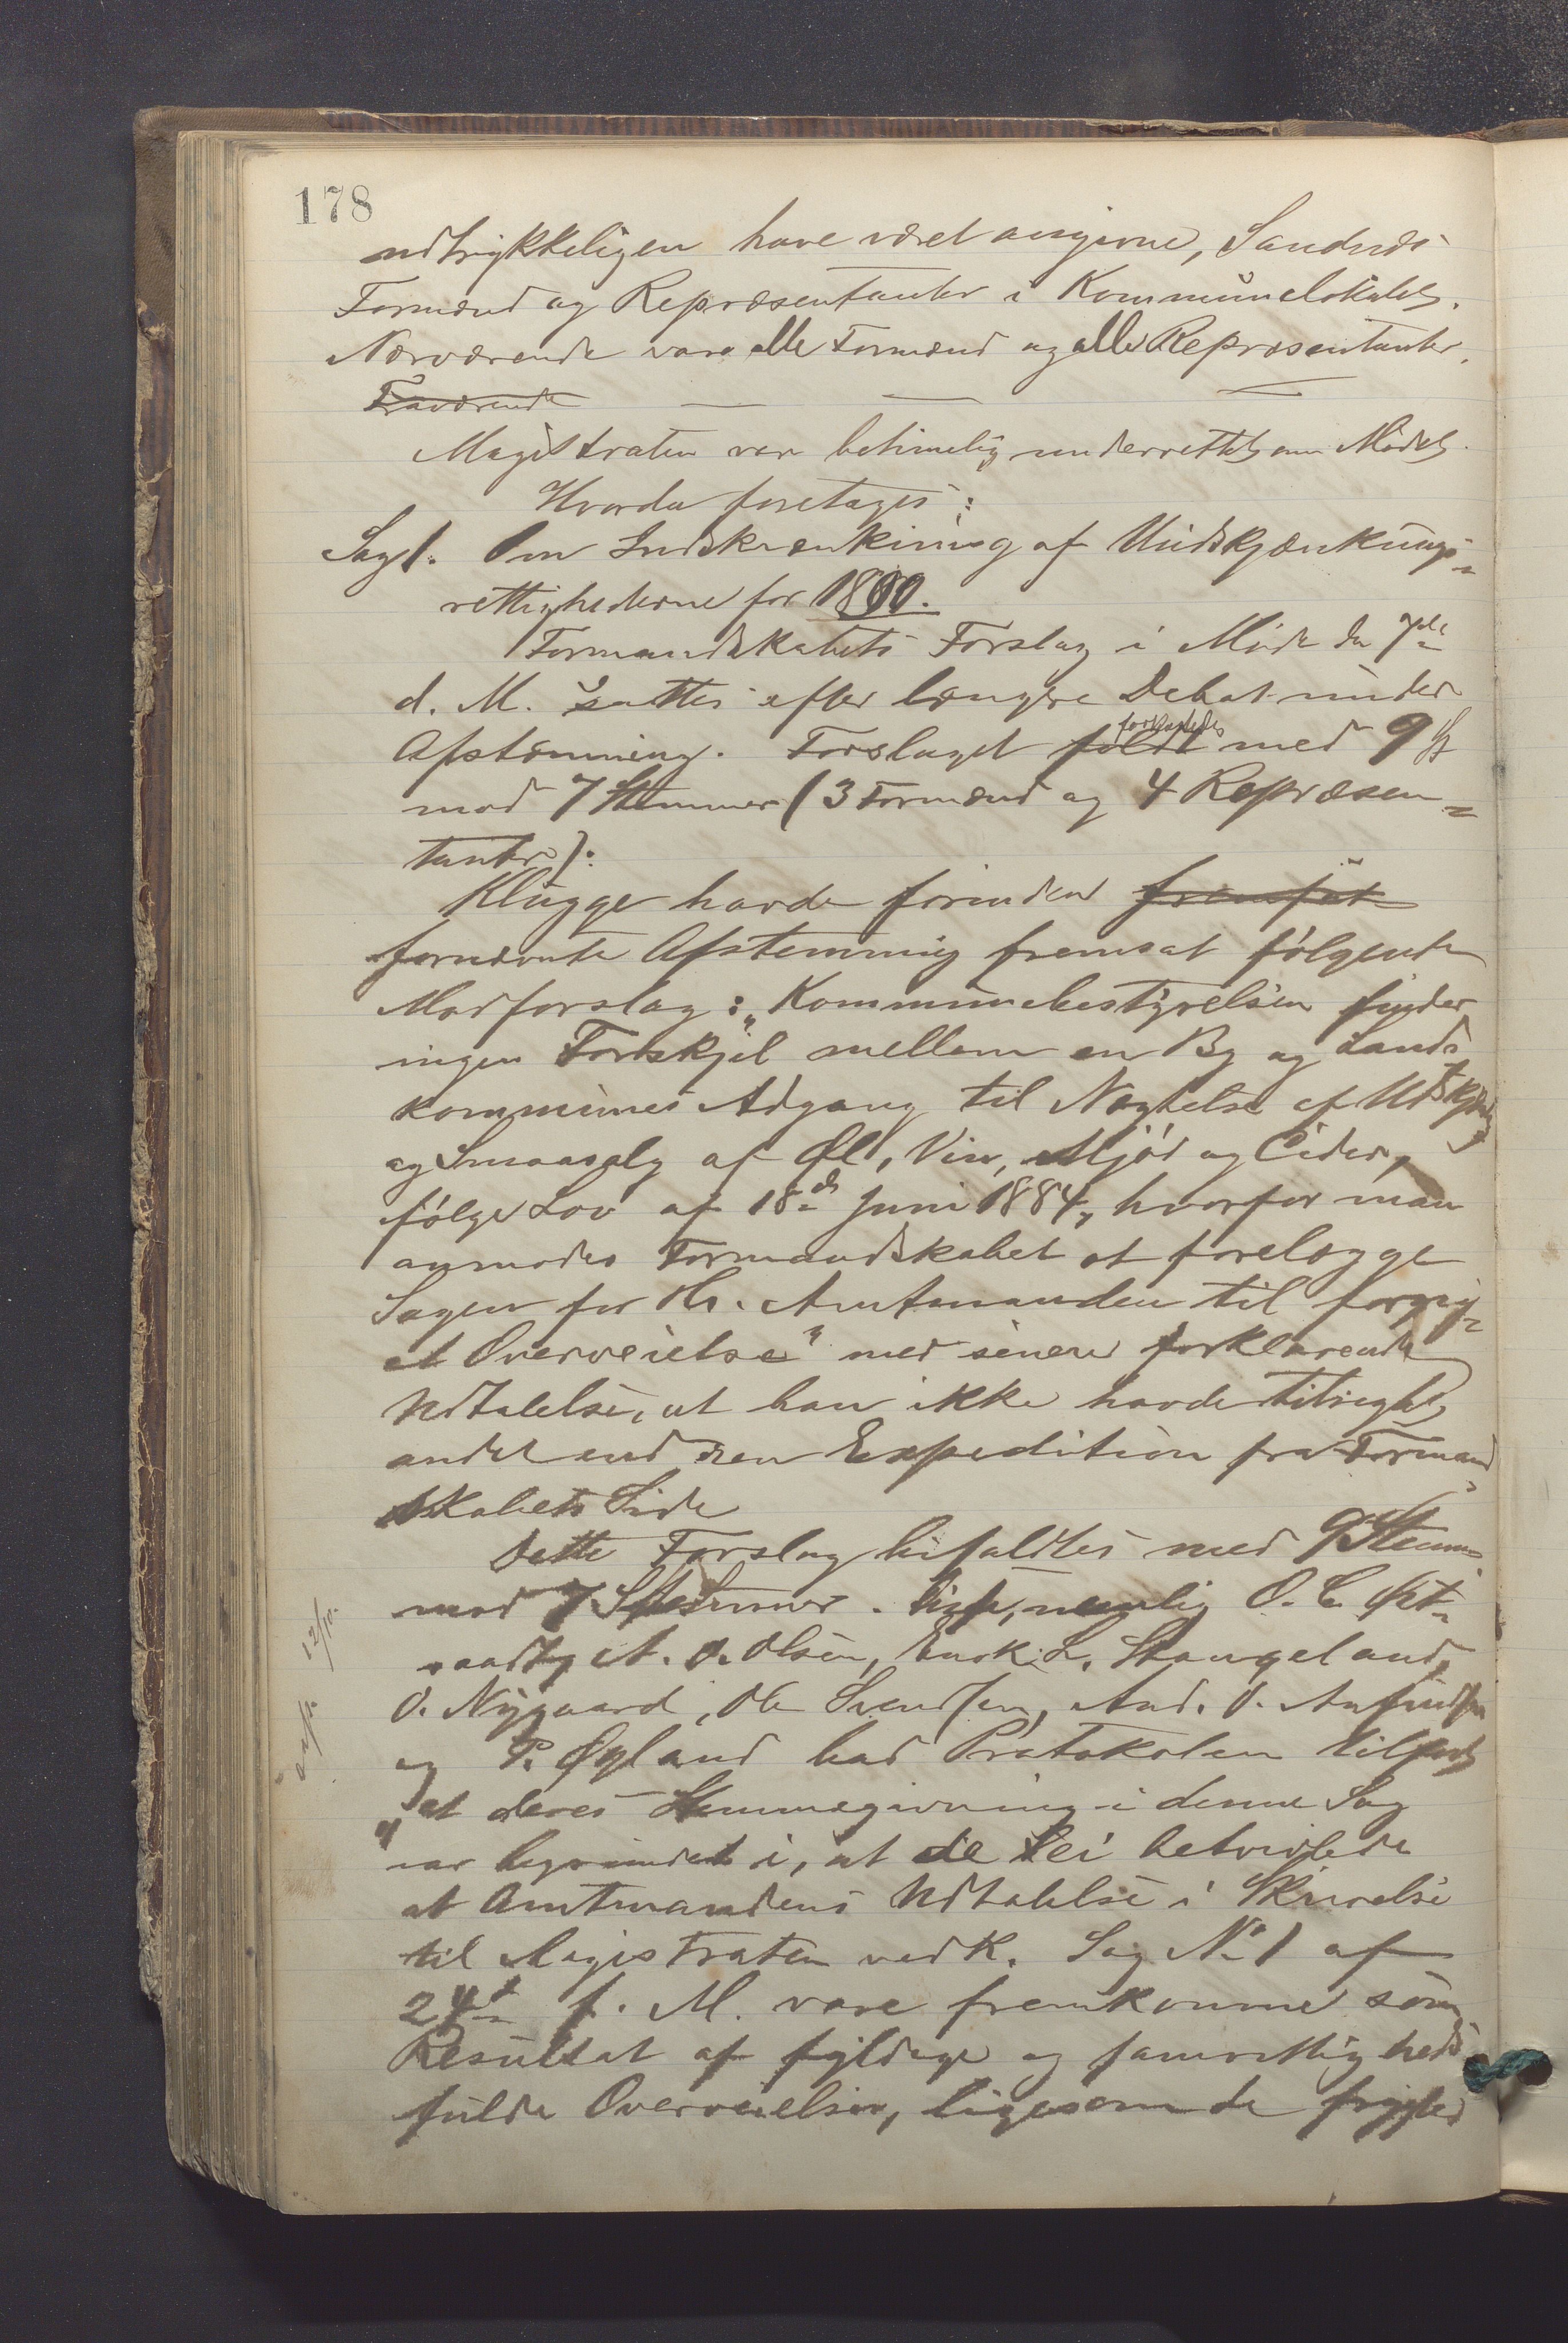 178
udtrykkeligen have været angivne, Sandnes
Formænd og Repræsentanter i Kommunelokalet.
Nærværende vare alle Formænd og alle Repræsentanter.
Fraværende — — —
Magistraten var betimelig underrettet om Mødet.
Hvorda foretages:
Sag 1. Om Indskrænkining af Uudskjænknings-
rettighederne for 1890.
Formandskabets Forslag i Møde den 7de
d. M. sattes efter længere Debat under
Afstemning. Forslaget faldt forkastedes med 9
mod 7 Stemmer (3 Formænd og 4 Repræsen-
tanter).
Klugge havde forinden fremsat
fornævnte Afstemning fremsat følgende
Modforslag: „Kommunebestyrelsen finder
ingen Forskjel mellem en By og Lands
kommunes Adgang til Nægtelse af Udskjænkg
og Smaasalg af Øl, Vin, Mjød og Cider,
følge Lov af 18de Juni 1884, hvorfor man
anmoder Formandskabet at forelægge
Sagen for Hr. Amtmanden til forny-
et Overveielse" med senere forklarende
Udtalelse, at han ikke havde tilsigtet
andet end ren Expedition fra Formand
skabets Side
Dette Forslag bifaldtes med 9 Stemm.
mod 7 Stemmer. nemlig O. C. Øst-
raadt, A. O. Olsen, Enok L. Stangeland,
O. Nygaard, Ole Svendsen, And. O. Anfindsen
og P. Øgland bad Protokolen tilført
„at deres Stemmegivning i denne Sag
var begrundet i, at de ei betvivlede
at Amtmandens Udtalelse i Skrivelse
til Magistraten vedk. Sag No 1 af
24de f. M. vare fremkomne som
Resultat af fyldige og samvittigheds
fulde Overveielser, ligesom de frygted
12/10.